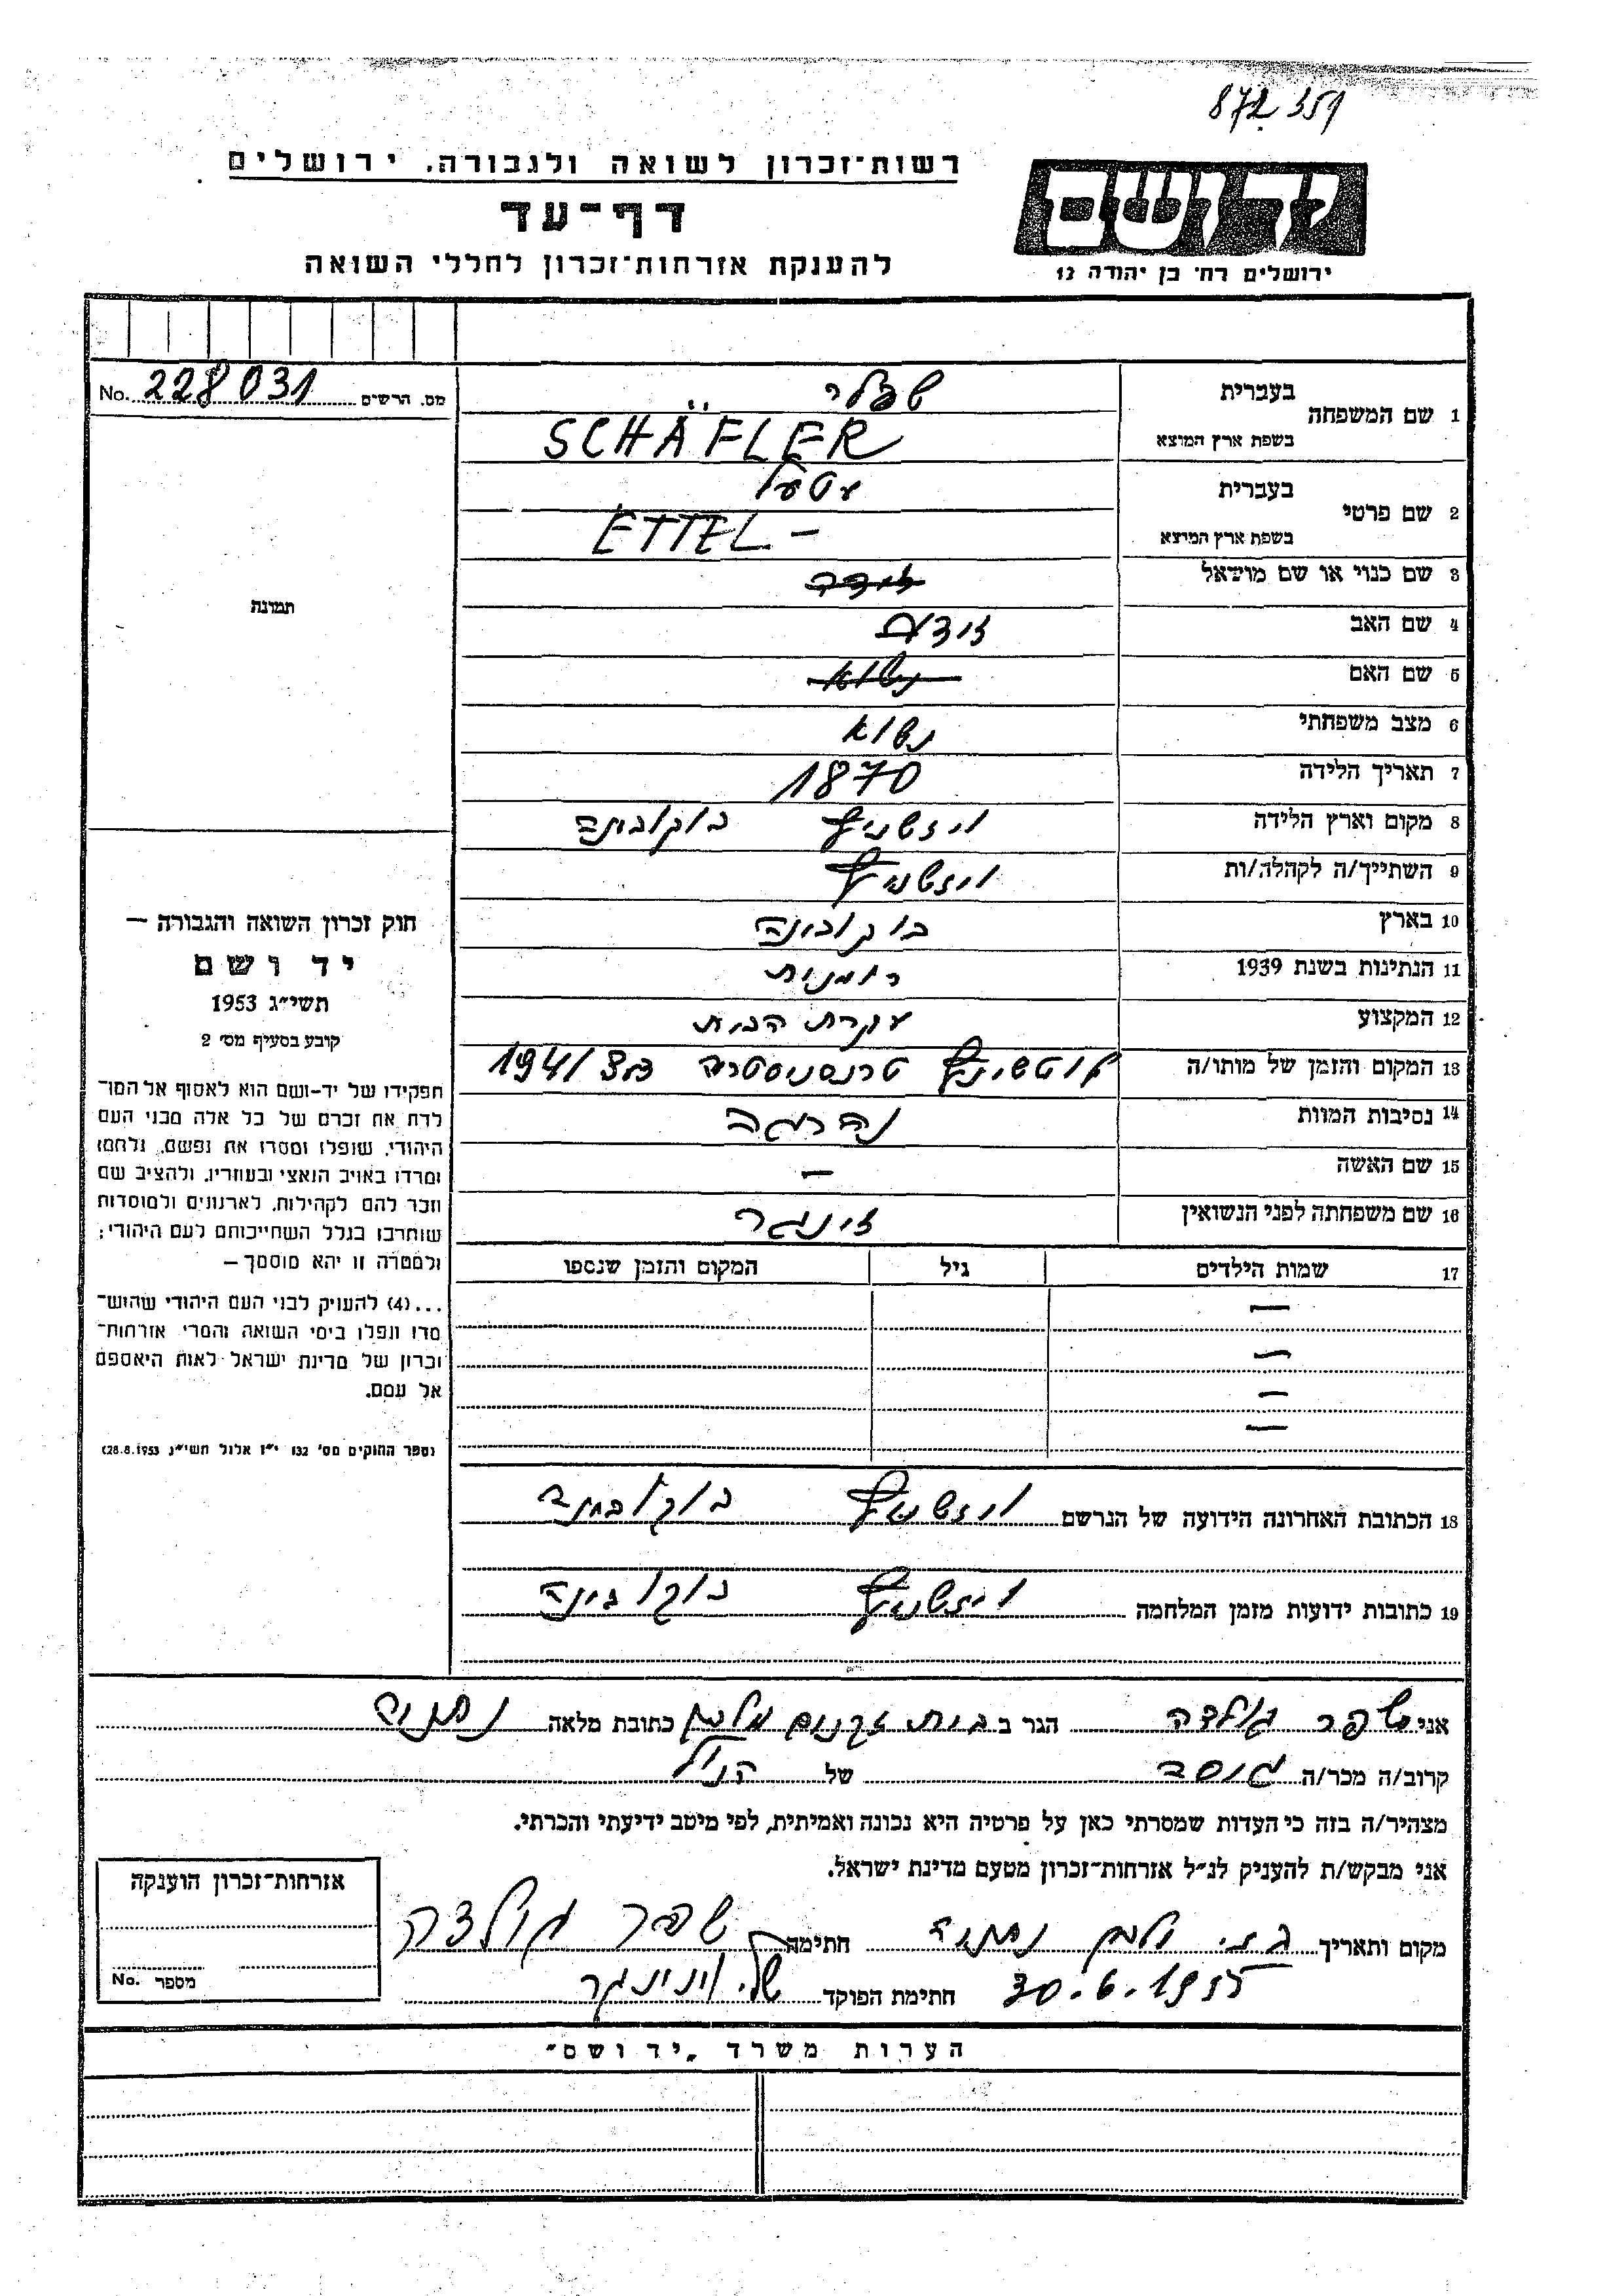 872 351
רשות־זכרון לשואה ולגבורה, ירושלים
דף־עד
להענקת אזרחות־זכרון לחללי השואה
ידושם
ירושלים רח׳ בן יהודה 12
מס. הרשים No. 228031
1 שם המשפחה
בעברית שפלר
בשפת ארץ המוצא SCHÄFLER
2 שם פרטי
בעברית עטעל
בשפת ארץ המיצא ETTEL -
תמונה
3 שם כנוי או שם מושאל
4 שם האב
5 שם האם נשוא
6 מצב משפחתי נשוא
7 תאריך הלידה 1870
8 מקום וארץ הלידה ויזשניץ בוקובינה
9 השתייך/ה לקהלה/ות ויזשניץ
10 בארץ בוקובינה
11 הנתינות בשנת 1939 רומנית
12 המקצוע עקרת הבית
13 המקום והזמן של מותו/ה טרנסניסטריה 1941
14 נסיבות המוות נהרגה
15 שם האשה —
16 שם משפחתה לפני הנשואין זינגר
17 שמות הילדים גיל המקום והזמן שנספו
—
—
—
—
חוק זכרון השואה והגבורה —
יד ושם
תשי״ג 1953
קובע בסעיף מס׳ 2
תפקידו של יד-ושם הוא לאסוף אל המו־
לדת את זכרם של כל אלה מבני העם
היהודי, שנפלו ומסרו את נפשם, נלחמו
ומרדו באויב הנאצי ובעוזריו, ולהציב שם
וזכר להם לקהילות, לארגונים ולמוסדות
שנחרבו בגלל השתייכותם לעם היהודי;
ולמטרה זו יהא מוסמך —
...(4) להעניק לבני העם היהודי שהוש־
מדו ונפלו בימי השואה והמרי אזרחות־
זכרון של מדינת ישראל לאות היאספם
אל עמם.
(ספר החוקים מס׳ 132 י״ז אלול תשי״ג 28.8.1953)
18 הכתובת האחרונה הידועה של הנרשם ויזשניץ בוקובינה
19 כתובות ידועות מזמן המלחמה ויזשניץ בוקובינה
אני שפר גולדה הגר ב בית זקנים מלבן כתובת מלאה נתניה
קרוב/ה מכר/ה גיסה של הנ״ל
מצהיר/ה בזה כי העדות שמסרתי כאן על פרטיה היא נכונה ואמיתית, לפי מיטב ידיעתי והכרתי.
אני מבקש/ת להעניק לנ״ל אזרחות־זכרון מטעם מדינת ישראל.
מקום ותאריך נתניה חתימה שפר גולדה
30.6.1955 חתימת הפוקד
אזרחות־זכרון הוענקה
מספר No.
הערות משרד „יד ושם״